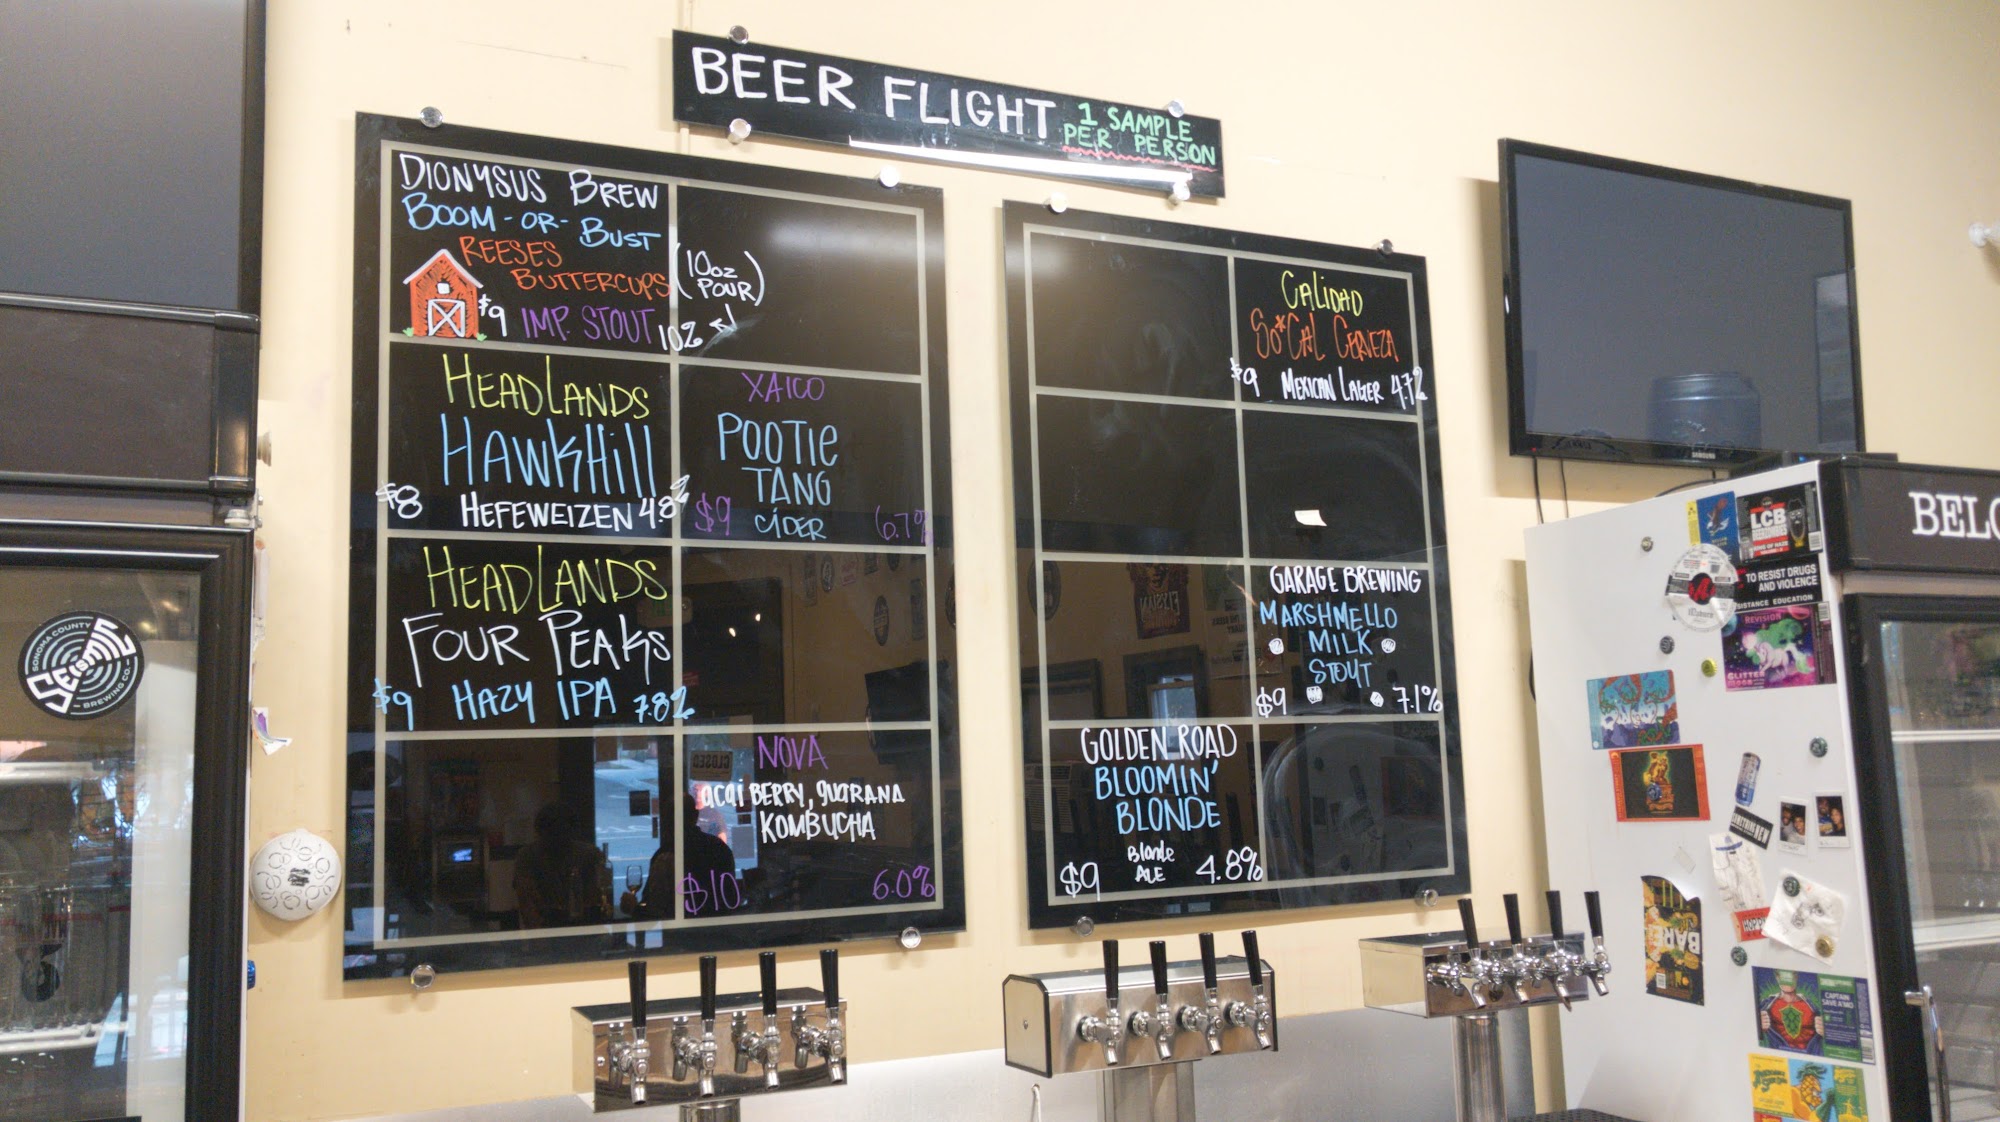 BEER FLIGHT
1 SAMPLE
PER PERSON
DIONYSUS BREW
BOOM-OR-BUST
REESES
BUTTERCUPS
(10oz
POUR)
$9 IMP. STOUT 10%
HEADLANDS
HAWKHILL
$8 HEFEWEIZEN 4.8%
XAICO
POOTIE
TANG
CIDER
$9 6.7%
HEADLANDS
FOUR PEAKS
$9 HAZY IPA 7.8%
NOVA
ACAI BERRY, GUARANA
KOMBUCHA
$10 6.0%
CALIDAD
SO*CAL CERVEZA
$9 MEXICAN LAGER 4.7%
GARAGE BREWING
MARSHMELLO
MILK
STOUT
$9 7.1%
GOLDEN ROAD
BLOOMIN'
BLONDE
Blonde
ALE
$9 4.8%
SAMSUNG
BELG
SONOMA COUNTY
SEISMIC
BREWING CO.
LCB
TO RESIST DRUGS
AND VIOLENCE
SISTANCE EDUCATION
REVISION
GLITTER
MOON
BARE
CAPTAIN
SAVE A'MO
CLOSED
ELYSIAN